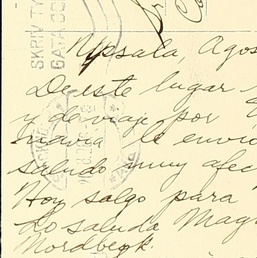 SKRIV TY
GATA OC
Upsala, Agos
De este lugar
y de viaje por
le envio
saludo muy afec
Hoy salgo para
do saluda Mag
Nordbeck.